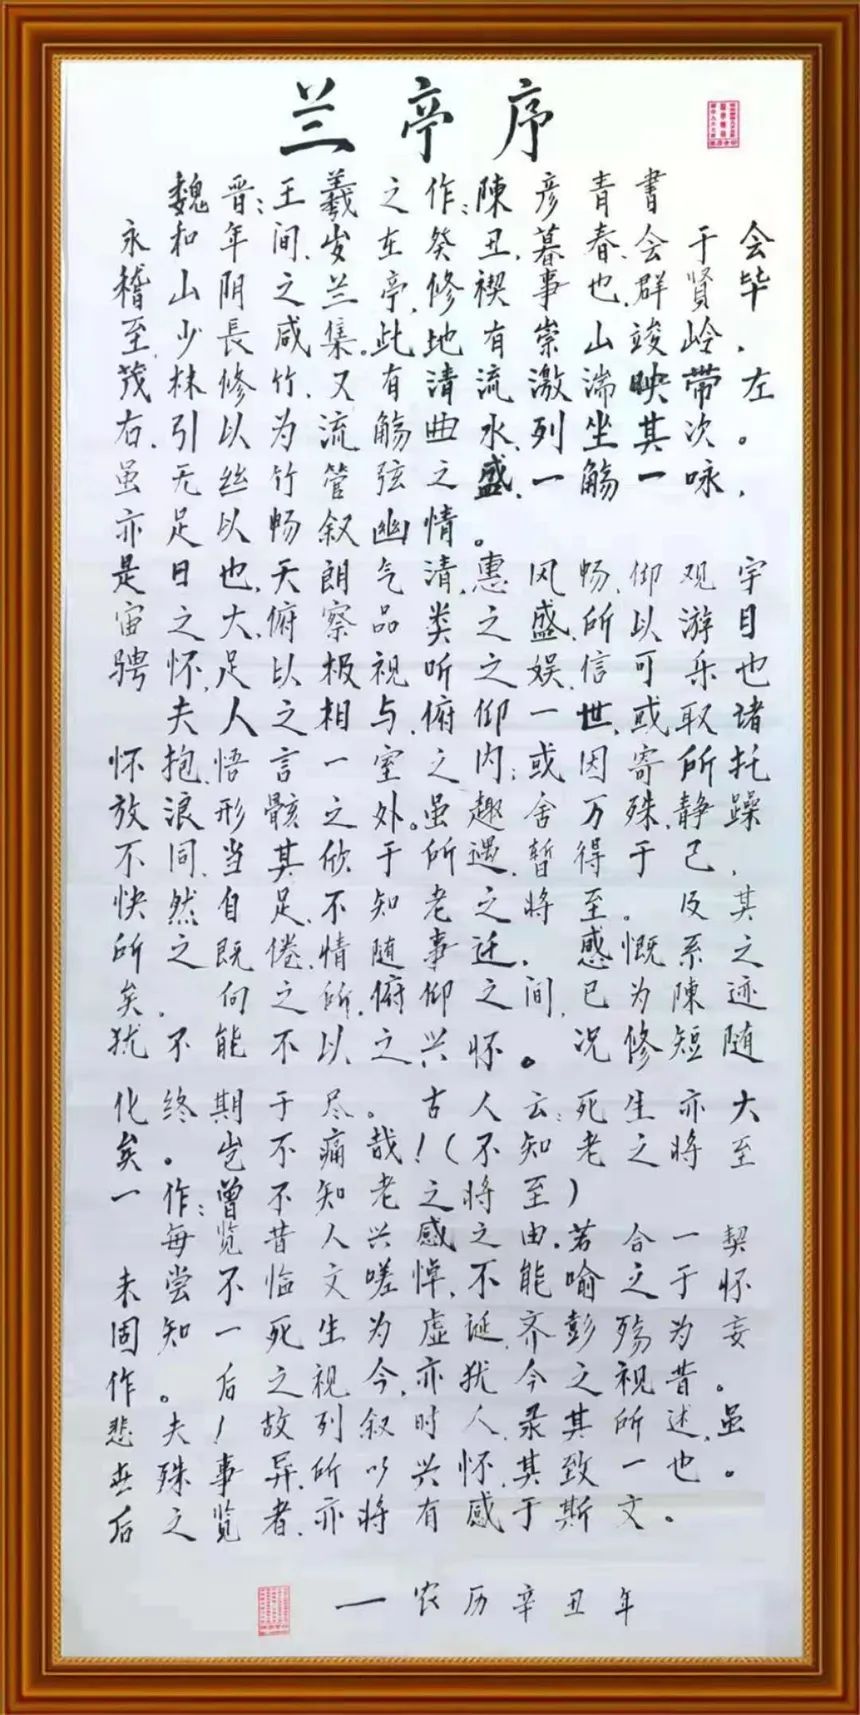 兰亭序
魏晋：王羲之作：陳彦青書
永和年间，岁在癸丑，暮春会于会
稽山阴之兰亭，修禊事也，群贤毕
至，少長咸集。此地有崇山竣岭，
茂林修竹，又有清流激湍，映带左
右，引以为流觞曲水，列坐其次。
虽无丝竹管弦之盛，一觞一咏，
亦足以畅叙幽情。
是日也，天朗气清，惠风畅，仰观宇
宙之大，俯察品类之盛，所以游目
骋怀，足以极视听之娱，信可乐也
夫人之相与，俯仰一世，或取堵
怀抱，悟言一室之内；或因寄所托
放浪形骸之外。虽趣舍万殊，静躁
不同，当其欣于所遇，暂得于己，
快然自足，不知老之将至。及其
所之既倦，情随事迁，感慨系之
矣。向之所，俯仰之间，已为陳迹
犹不能不以之兴怀。况修短随
化，终期于尽。古人云：死生亦大
矣。岂不痛哉！（不知老之将至
一作：曾不知老之将至）
每览昔人兴感之由，若合一契
未尝不临文嗟悼，不能喻之于怀
固知一死生为虚诞，齐彭殇为妄
作。后之视今，亦犹今之视昔。
悲夫！故列叙时人，录其所述，虽
世殊事异，所以兴怀，其致一也。
后之览者，亦将有感于斯文。
一农历辛丑年